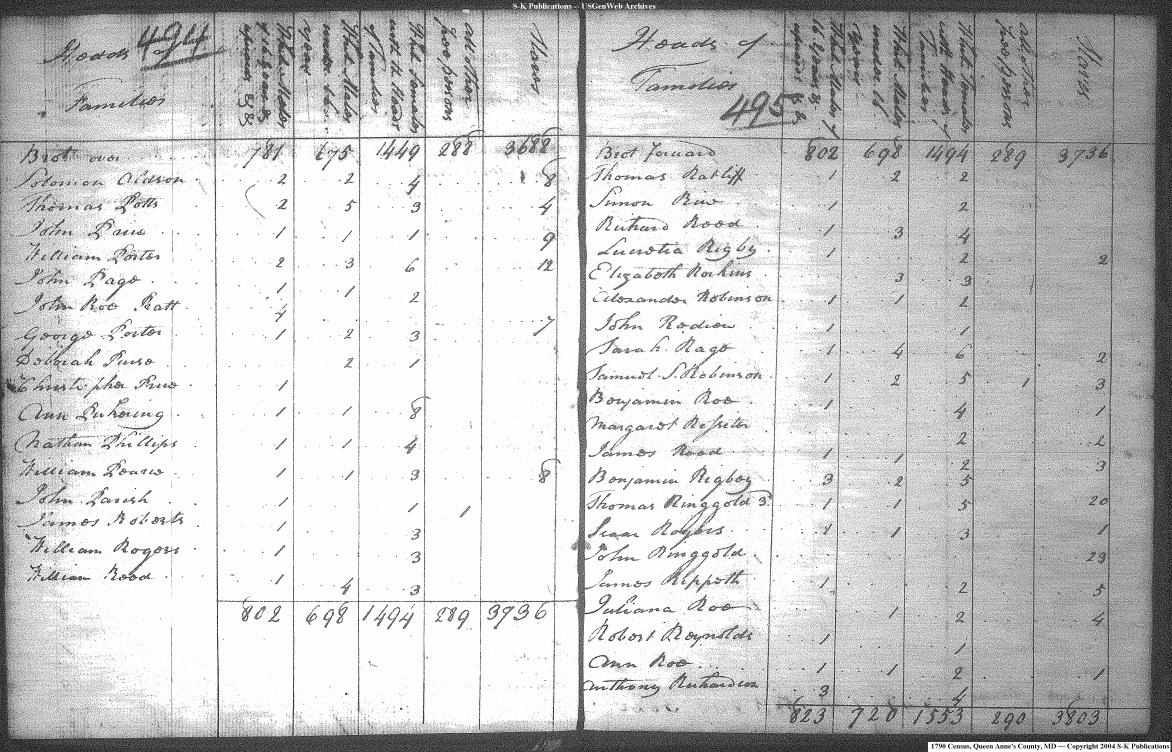 S-K Publications – USGenWeb Archives
Heads of Families 494 | White Males of 16 years & upwards &c | White Males under 16 years | White Females with the Heads of Families | all other free persons | Slaves
Brot over 781 675 1449 288 3688
Solomon Oldson 2 2 4 8
Thomas Potts 2 5 3 4
John Price 1 1 1 9
William Porter 2 3 6 12
John Page 1 1 2
John Roe Pratt 4 7
George Porter 1 2 3
Deborah 2 1
Price 1
Ann Pickering 1 1 8
Nathan Phillips 1 1 4
William Pearce 1 1 3 8
John Parish 1 1 1
James Roberts 1 3
William Rogers 1 3
William Rood 1 4 3
802 698 1494 289 3736
Heads of Families 495 | White Males of 16 years & upwards &c | White Males under 16 years | White Females with Heads of Families | all other free persons | Slaves
Brot forward 802 698 1494 289 3736
Thomas Ratliff 1 2 2
Simon 1 2
Richard Rood 3 4
Lucretia Rigby 1 2 2
Elizabeth 3 3
Alexander Robinson 1 1 2
John 1 1
Sarah Rage 1 4 6 2
Samuel S. Robinson 1 2 5 1 3
Benjamin Roe 1 4 1
Margaret 2 2
James Rood 1 1 2 3
Benjamin Rigboy 3 2 5
Thomas Ringgold 3d 1 1 5 20
Isaac Rogers 1 1 3 1
John Ringgold 23
James Rippeth 1 2 5
Juliana Roe 1 2 4
Robert Reynolds 1 1
Ann Roe 1 1 2 1
Anthony Richardson 3 4
823 720 1553 290 3803
1790 Census, Queen Anne's County, MD — Copyright 2004 S-K Publications